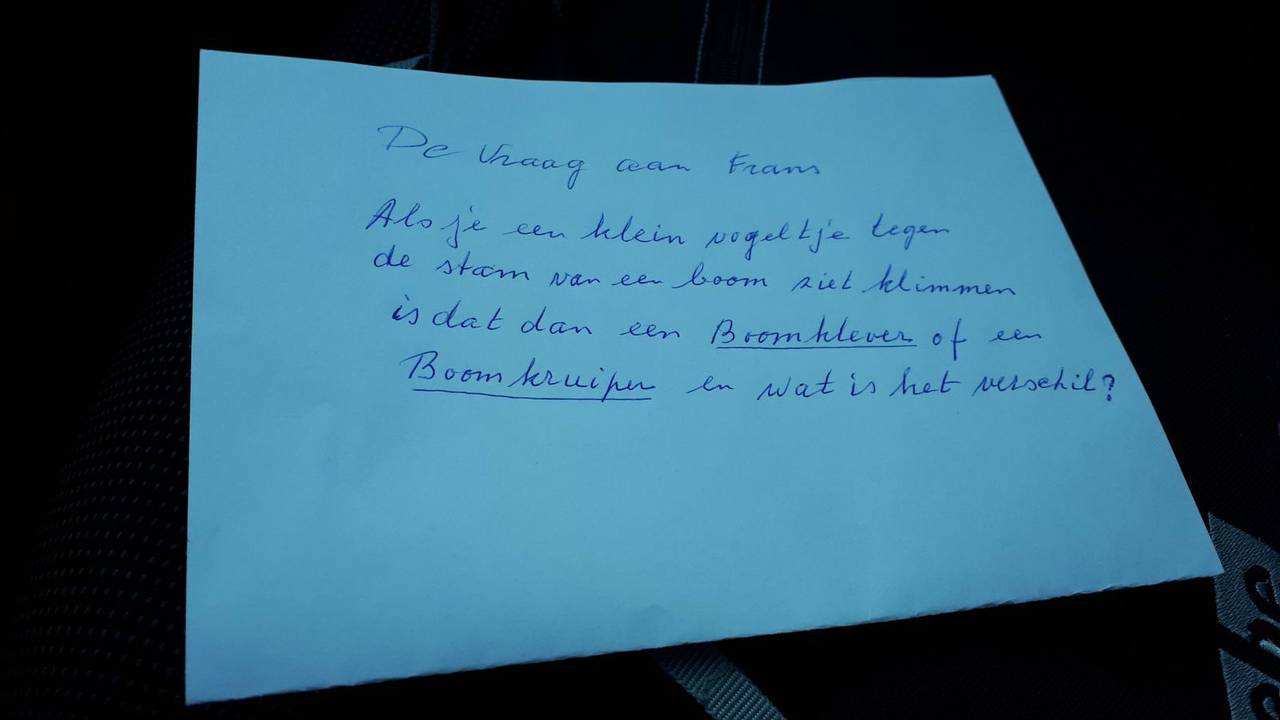 De Vraag aan Frans
Als je een klein vogeltje tegen
de stam van een boom ziet klimmen
is dat dan een Boomklever of een
Boomkruiper en wat is het verschil?